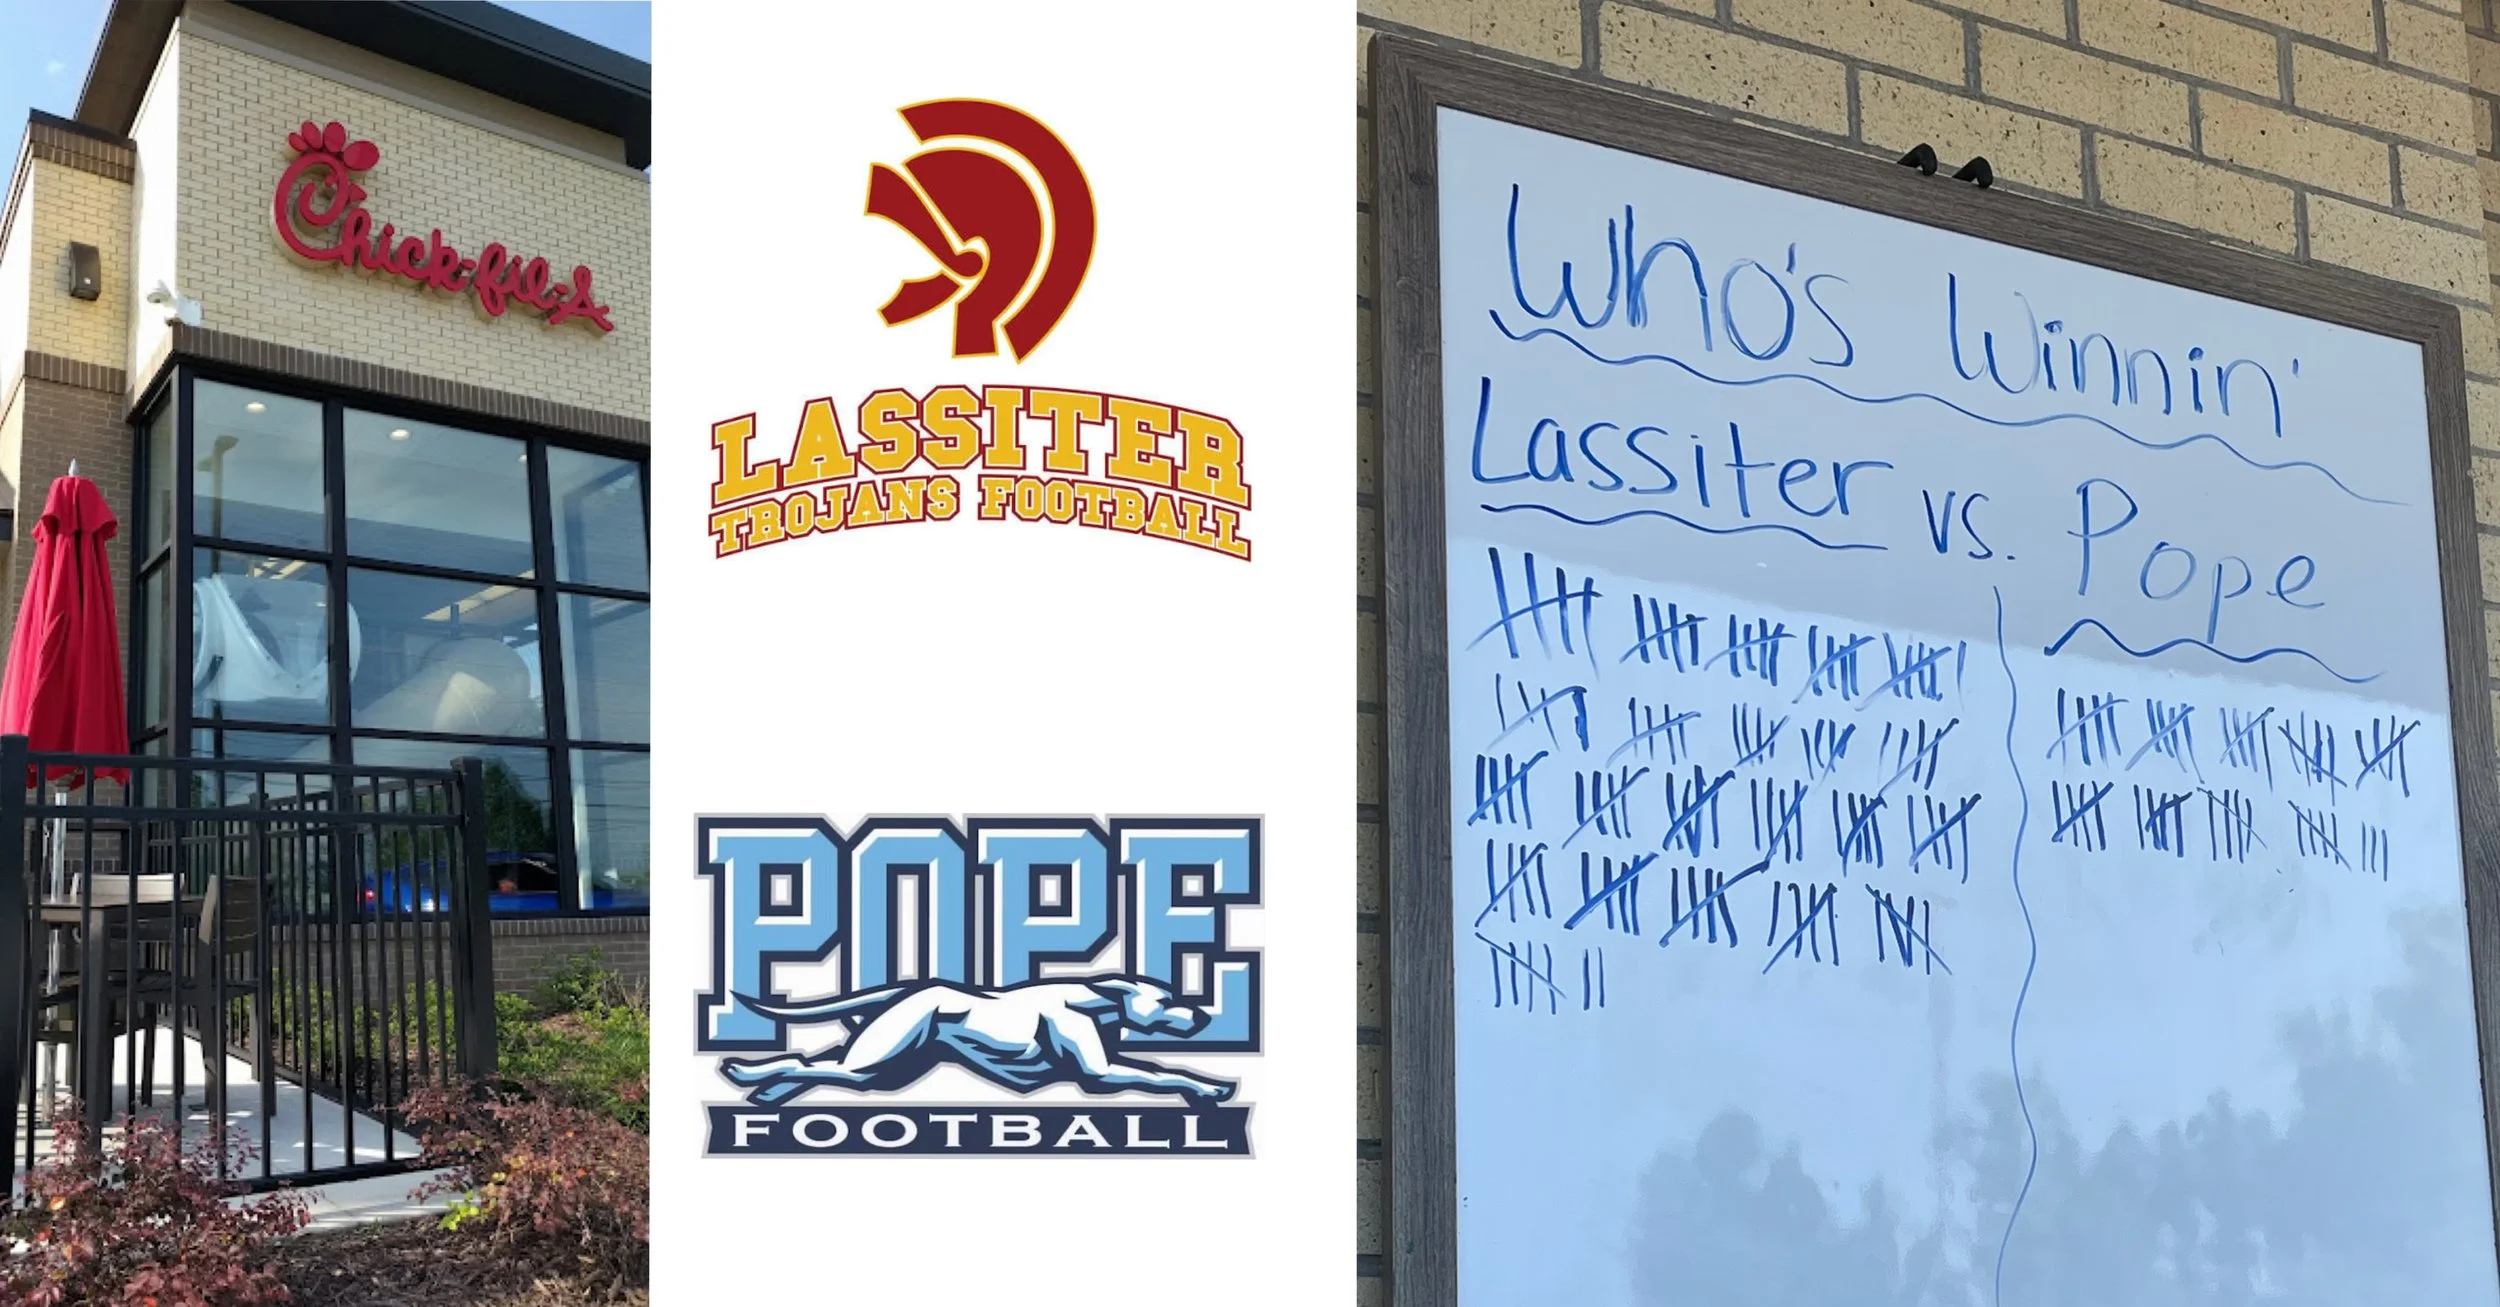 Chick-fil-A
LASSITER
TROJANS FOOTBALL
POPE
FOOTBALL
Who's Winnin'
Lassiter vs. Pope